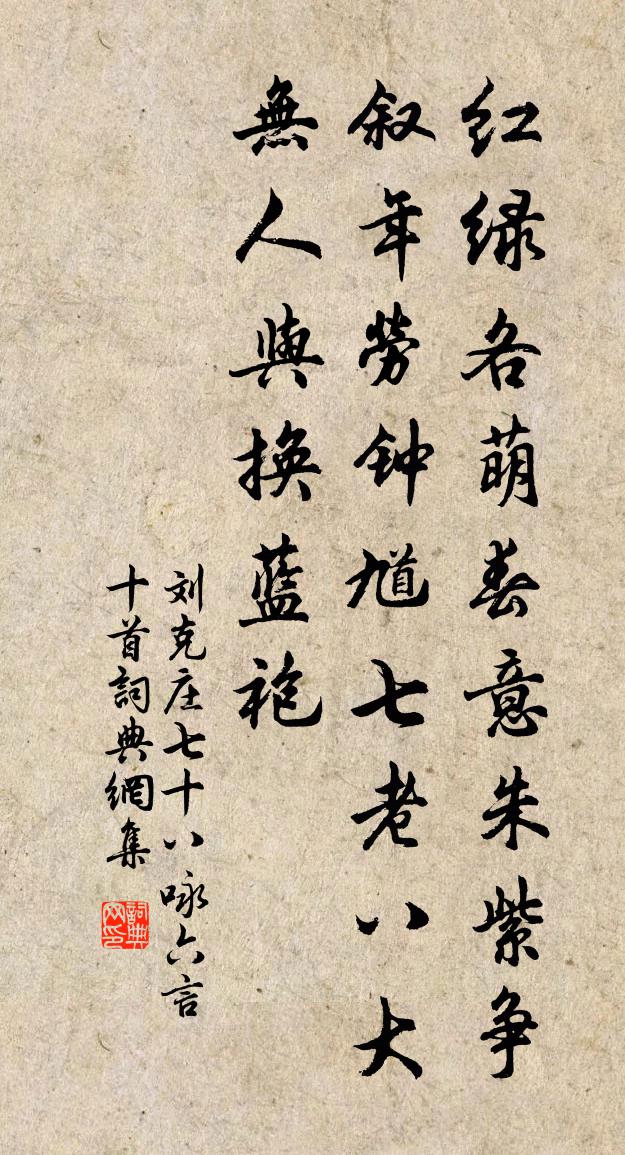 红绿各萌春意朱紫争
叙年劳钟馗七老八大
無人與换藍袍
刘克庄七十八咏六言
十首詞典網集
詞典
网印